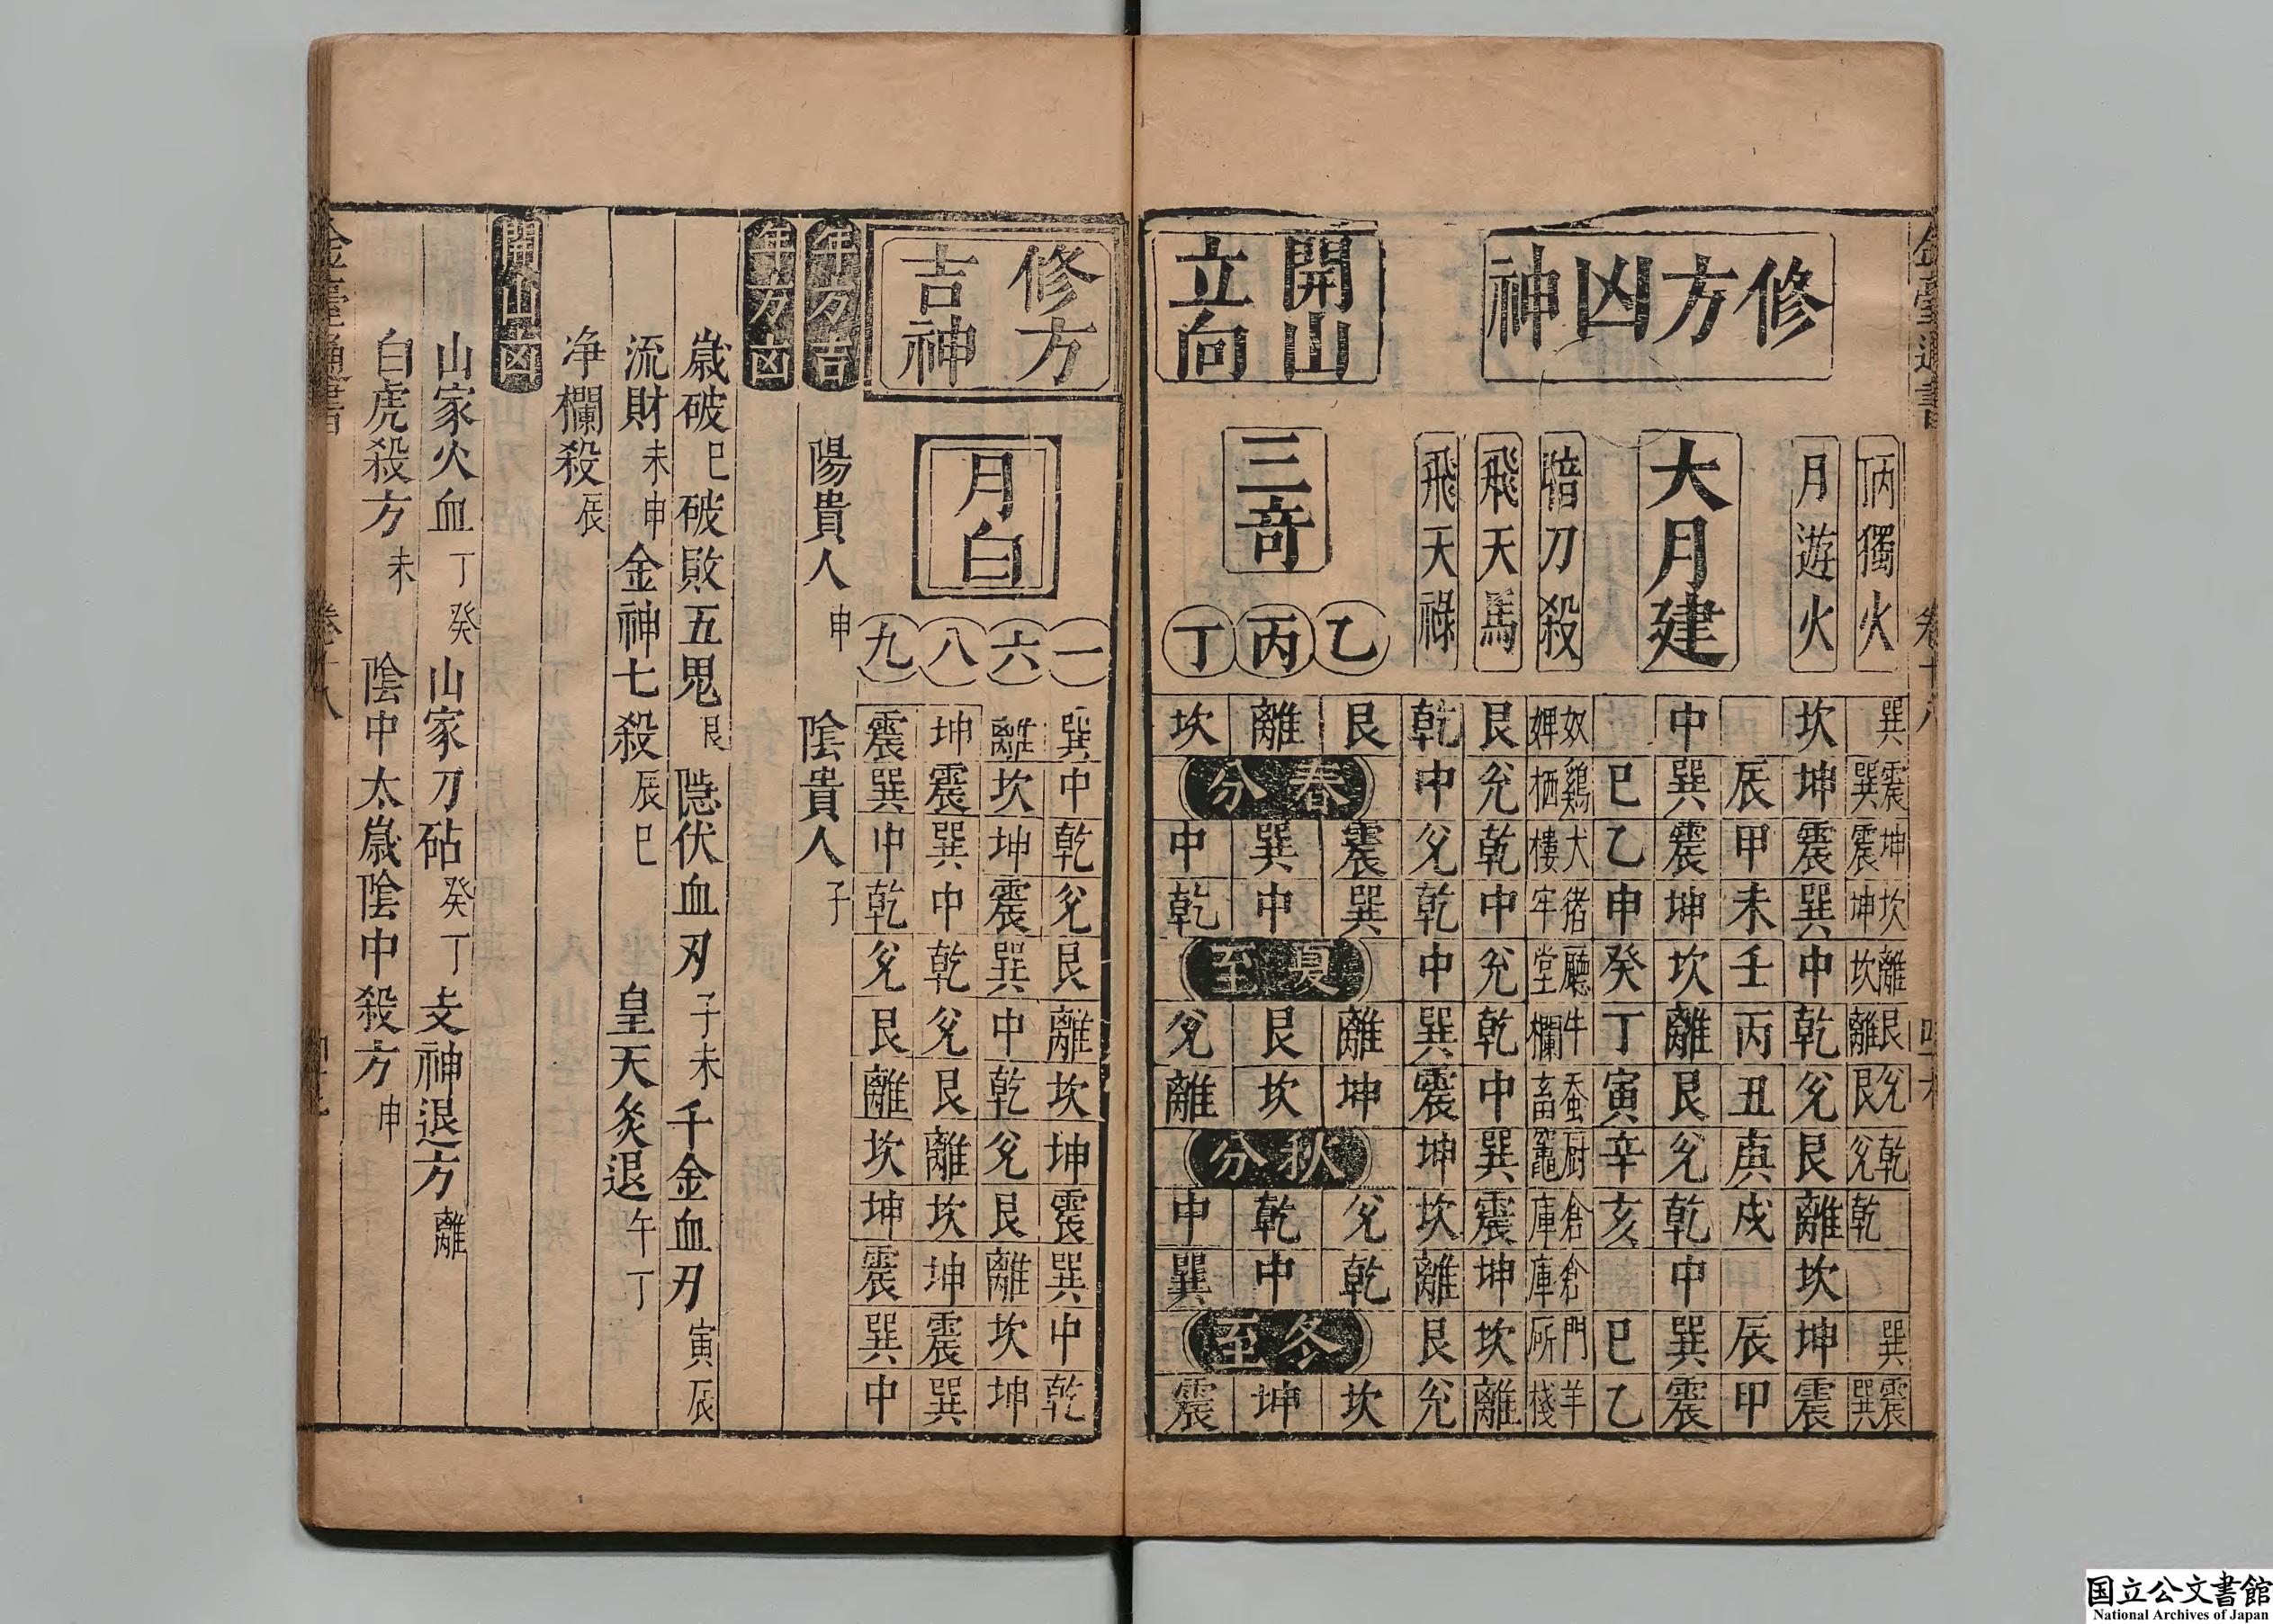 修方凶神
丙丁獨火 巽 巽震 震坤 坤坎 坎離 離艮 艮兊 兊乾 乾 巽 巽震
月遊火 坎 坤 震 巽 中 乾 兊 艮 離 坎 坤 震
大月建
辰 甲 未 壬 丙 丑 庚 戌 辰 甲
中 巽 震 坤 坎 離 艮 兊 乾 中 巽 震
巳 乙 申 癸 丁 寅 辛 亥 巳 乙
暗刀殺 奴婢 鷄栖 犬樓 猪牢 廳堂 牛欄 蚕畜 厨竈 倉庫 倉庫 門所 羊棧
飛天馬 艮 兊 乾 中 兊 乾 中 巽 震 坤 坎 離
飛天祿 乾 中 兊 乾 中 巽 震 坤 坎 離 艮 兊
開山立向
三竒
乙 艮 震 巽 離 坤 兊 乾 坎
丙 離 巽 中 艮 坎 乾 中 坤
丁 坎 中 乾 兊 離 中 巽 震
春分
夏至
秋分
冬至
修方吉神
月白
一 巽 中 乾 兊 艮 離 坎 坤 震 巽 中 乾
六 離 坎 坤 震 巽 中 乾 兊 艮 離 坎 坤
八 坤 震 巽 中 乾 兊 艮 離 坎 坤 震 巽
九 震 巽 中 乾 兊 艮 離 坎 坤 震 巽 中
年方吉 陽貴人 申 陰貴人 子
年方凶
歲破 巳 破敗五鬼 艮 隱伏血刃 子未 千金血刃 寅辰
流財 未申 金神七殺 辰巳 皇天炙退 午丁
净欄殺 辰
開山凶
山家火血 丁癸 山家刀砧 癸丁 支神退方 離
白虎殺方 未 陰中太歲陰中殺方 申
金臺通書 卷十八
国立公文書館
National Archives of Japan